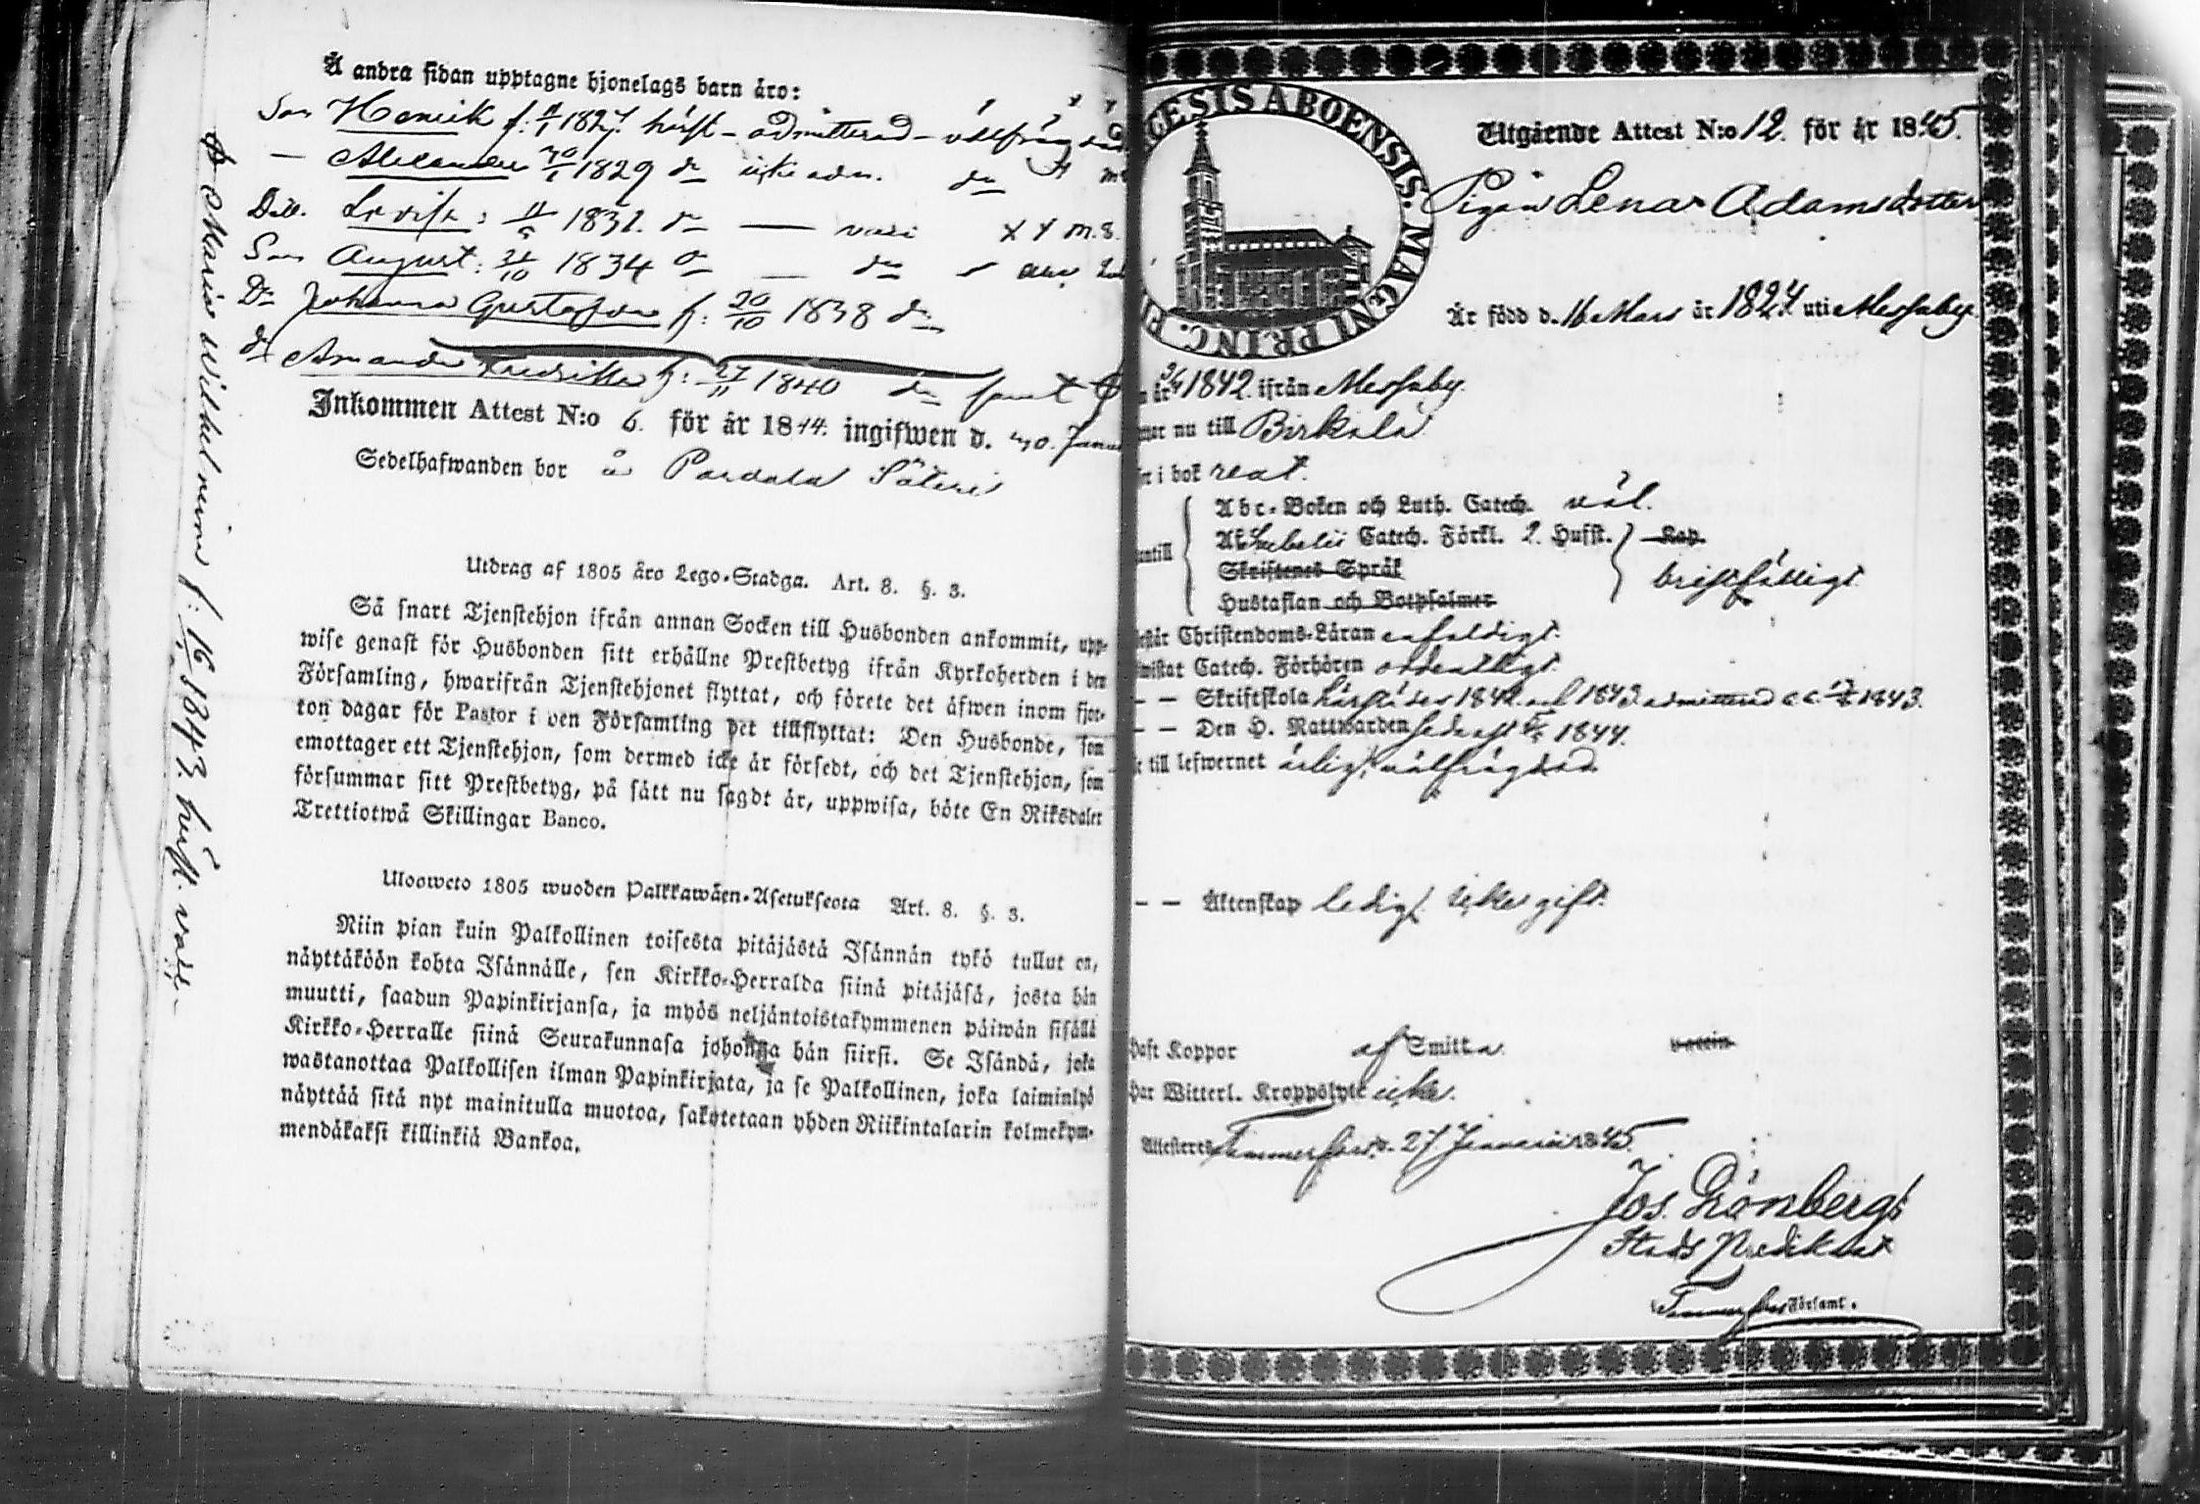 Å andra sidan upptagne hjonelags barn äro:
Son Henrik f. 1827. härst. admitterad välfrägdad
— Alexander 30/1 1829 d:o icke adm. d:o
Dott. Lovisa: 1831. d:o —
Son August: 1834 d:o — d:o
D:r Johanna Gustafva f: 20/10 1838 d:o
d:r Amanda Fredrika f: 27/11 1840 d:o samt
Inkommen Attest N:o 6. för år 1844. ingifwen d. 30. Janua
Sedelhafwanden bor å Pardala Säteri
Maria Wilhelmina f: 16 1843. härst.
Utdrag af 1805 års Lego-Stadga. Art. 8. §. 3.
Så snart Tjenstehjon ifrån annan Socken till Husbonden ankommit, upp-
wise genast för Husbonden sitt erhållne Prestbetyg ifrån Kyrkoherden i den
Församling, hwarifrån Tjenstehjonet flyttat, och förete det äfwen inom fjor-
ton dagar för Pastor i den Församling det tillflyttat: Den Husbonde, som
emottager ett Tjenstehjon, som dermed icke är försedt, och det Tjenstehjon, som
försummar sitt Prestbetyg, på sätt nu sagdt är, uppwisa, böte En Riksdaler
Trettiotwå Skillingar Banco.
Ulosweto 1805 wuoden Palkkawäen-Asetuksesta Art. 8. §. 3.
Niin pian kuin Palkollinen toisesta pitäjästä Isännän tykö tullut on,
näyttäköön kohta Isännälle, sen Kirkko-Herralda siinä pitäjäsä, josta hän
muutti, saadun Papinkirjansa, ja myös neljäntoistakymmenen päiwän sisällä
Kirkko-Herralle siinä Seurakunnasa johonga hän siirsi. Se Isändä, joka
wastanottaa Palkollisen ilman Papinkirjata, ja se Palkollinen, joka laiminlyö
näyttää sitä nyt mainitulla muotoa, sakotetaan yhden Riikintalarin kolmekym-
mendäkaksi killinkiä Bankoa.
CESIS ABOENSIS. MAGNI PRINC. FI
Utgående Attest N:o 12. för år 1845.
Pigan Lena Adamsdotter
Är född d. 16 Mars år 1824 uti Messuby
år 1842 ifrån Messuby.
nu till Birkala
i bok rent.
Abc-Boken och Luth. Catech. väl.
Af Svebelii Catech. Förkl. 2. Hufst. Kap.
Skriftenes Språk
bristfälligt
Hustaflan och Botpsalmer
Christendoms-Läran enfaldigt.
wistat Catech. Förhören ordentligt.
— — Skriftskola härstädes 1842 och 1843 admitterad 1843.
— — Den H. Nattwarden sednast 1844.
till lefwernet ärlig, välfrägdad.
— — Äktenskap ledig. icke gift.
Haft Koppor af Smitta. vaccin
Har Witterl. Kroppslyte icke.
Attesteres Tammerfors d. 27 Januarii 1845.
Jos. Grönberg
Stads Predikant
Tammerfors Församl.